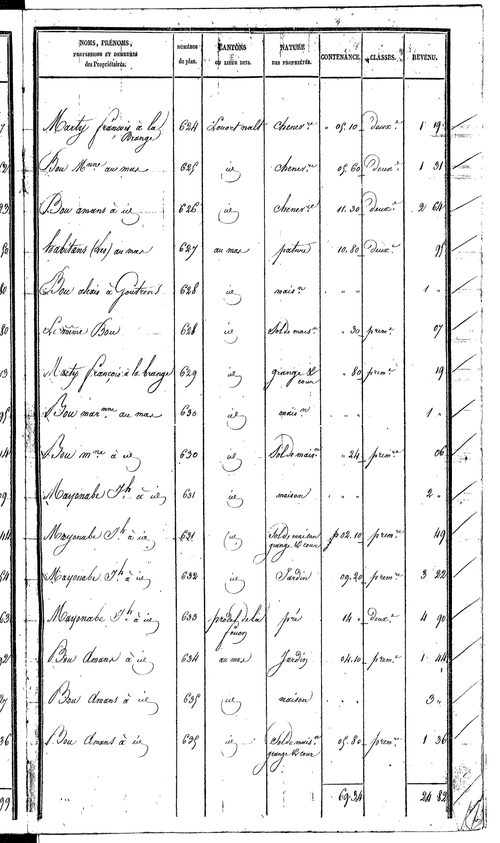 NOMS, PRÉNOMS, PROFESSIONS ET DEMEURES des Propriétaires. NUMÉROS du plan. CANTONS OU LIEUX DITS. NATURE DES PROPRIÉTÉS. CONTENANCE. CLASSES. REVENU.
Marty françois à la 624 chener.re " 05.10 deux.e 1 19
Brange
Bou M.nne au mas 625 id chener.re 05.60 deux.e 1 31
Bou amans à id 626 id chener.re 11.30 deux.e 2 64
habitans (les) au mas 627 au mas pature 10.80 deux.e 95
Bou à Goutrens 628 id mais.n " " 1 "
Le même Bou 628 id Sol de mais.n " 30 prem.re 07
Marty françois à la brange 629 id grange & " 80 prem.re 19
cour
Bou mar.nne au mas 630 id mais.n " " 1 "
Bou m.ne à id 630 id Sol de mais.n " 24 prem.re 06
Mayonabe J.h à id 631 id maison " " 2 "
Mayonabe J.h à id 631 id Sol de maison 02.10 prem.re 49
grange & cour
Mayonabe J.h à id 632 id Jardin 09.20 prem.re 3 22
Mayonabe J.h à id 633 prade de la pré 14 " deux.e 4 90
Bou Amans à id 634 au mas Jardin 04.10 prem.re 1 44
Bou Amans à id 635 id maison " 3 "
Bou Amans à id 635 id Sol de mais.n 05.80 prem.re 1 36
grange & cour
69 34 24 82